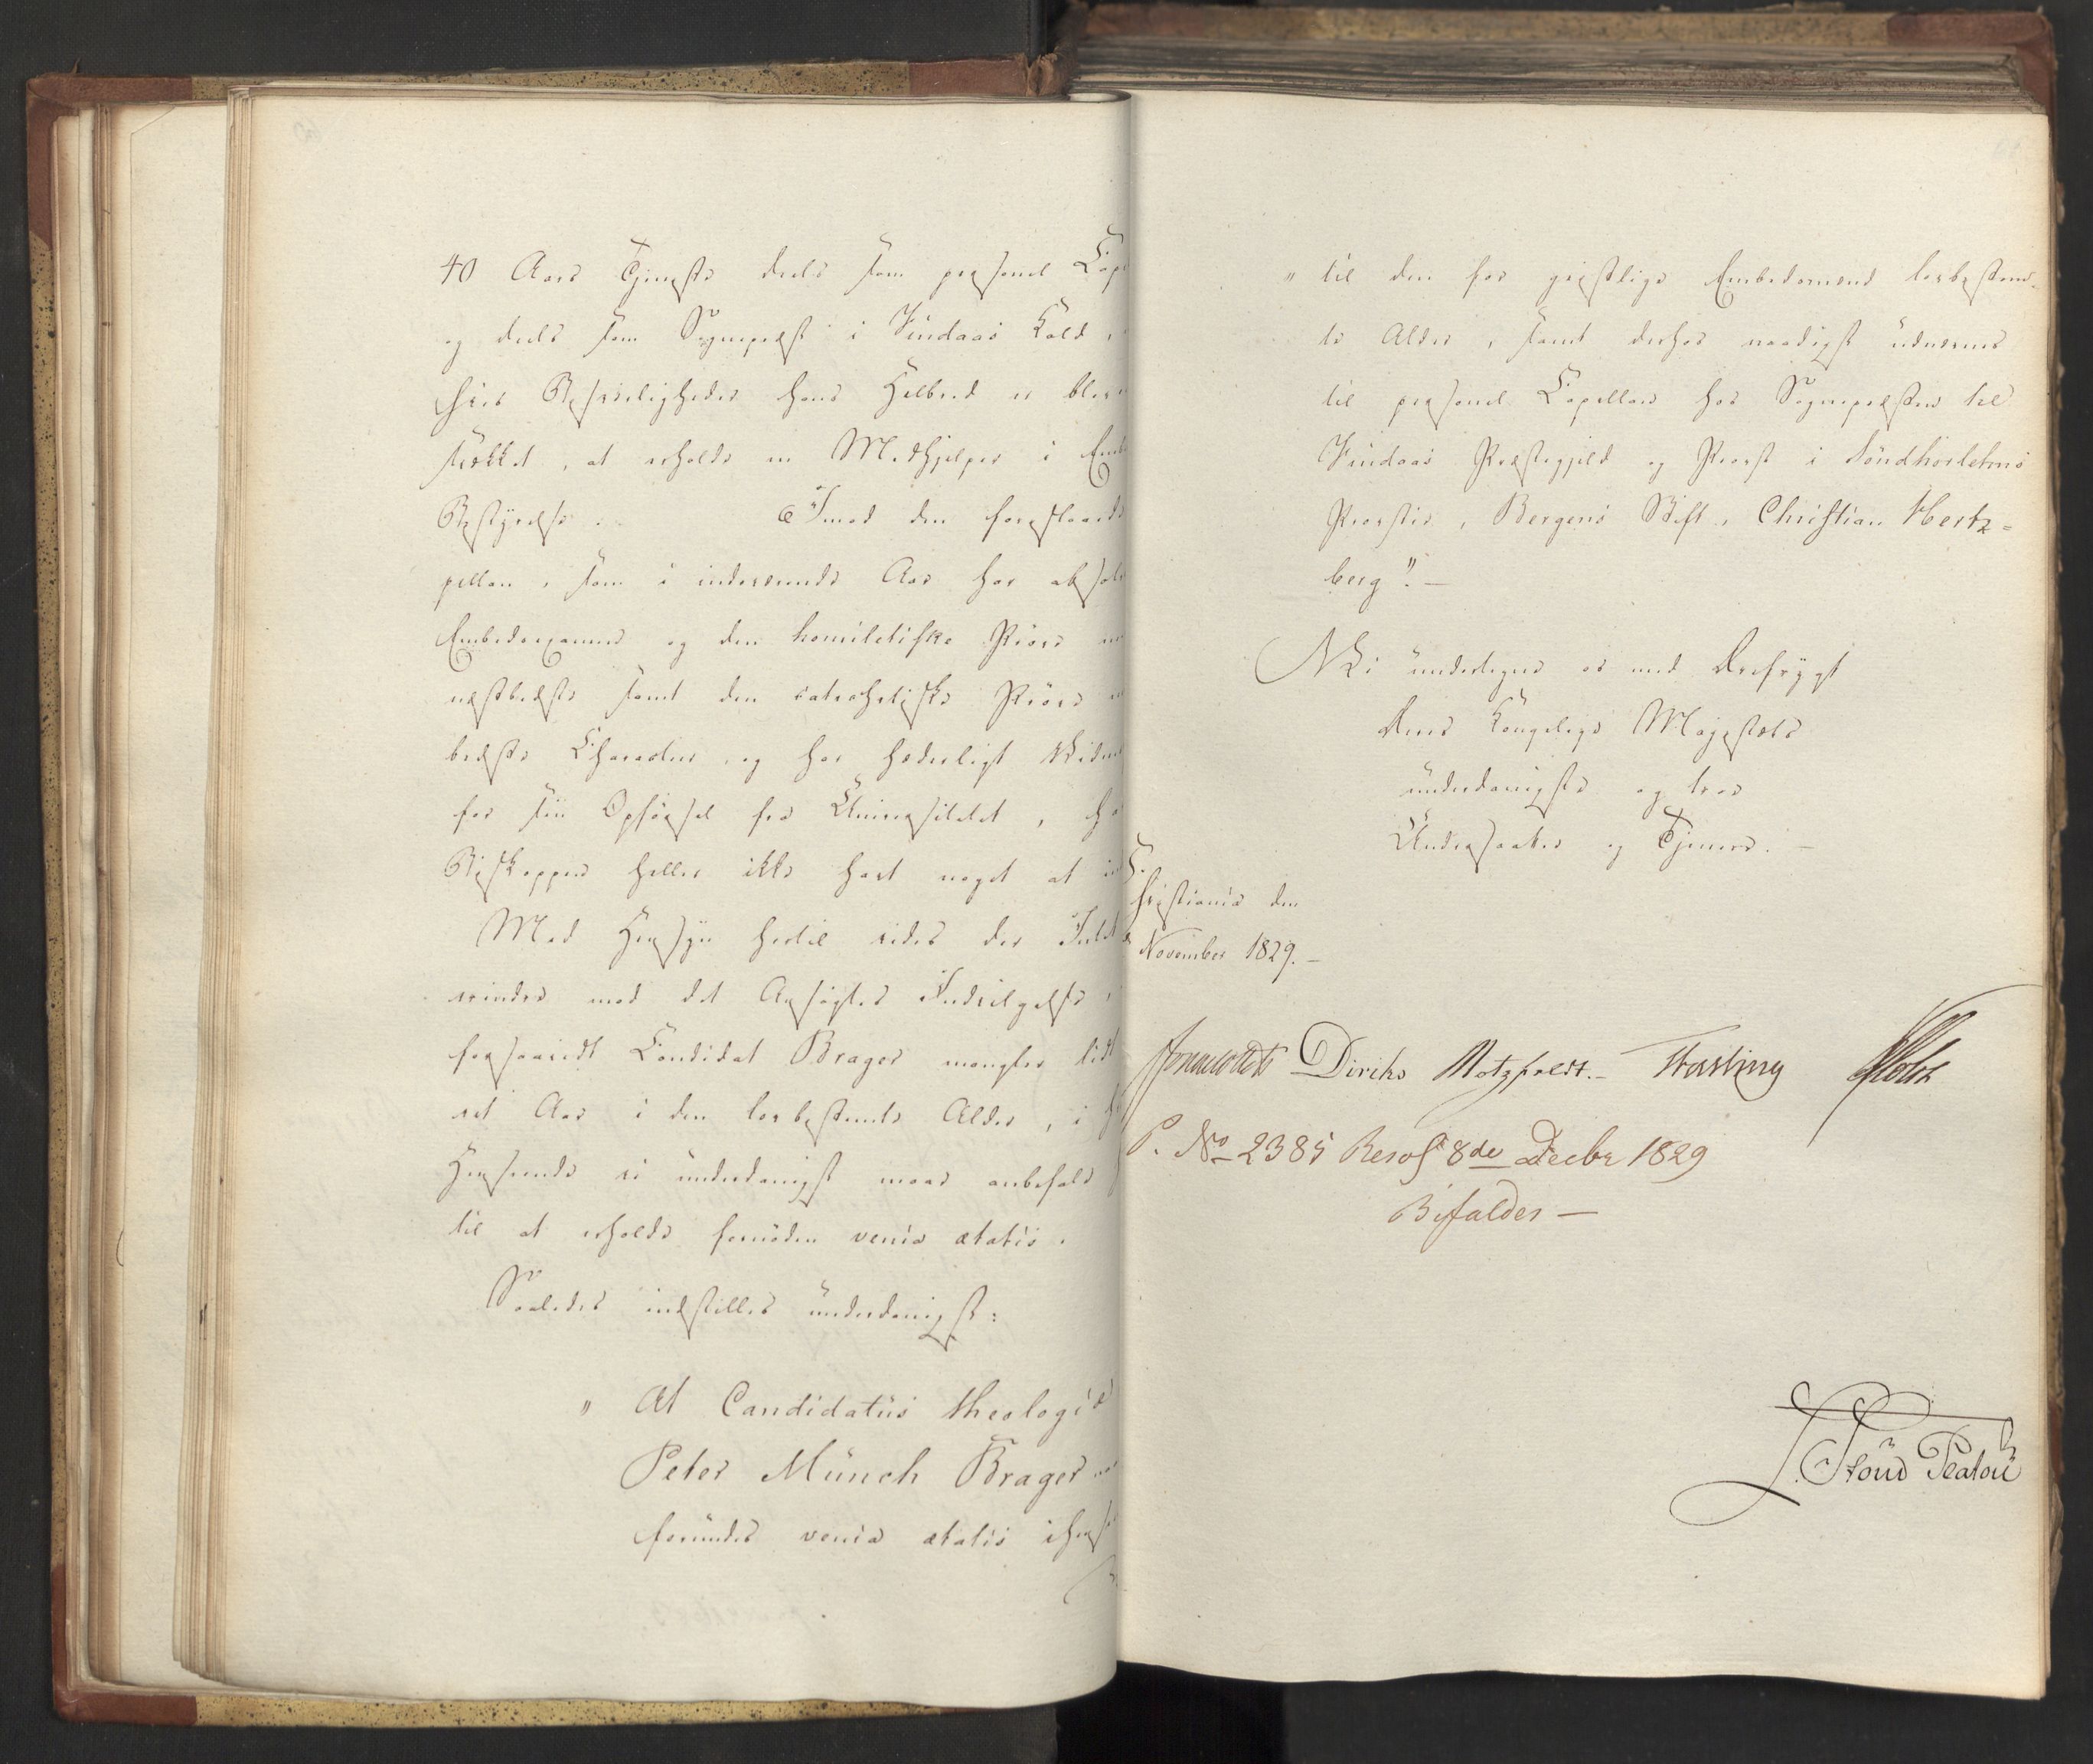 40 Aars Tjeneste deels som personel Cap
og deels som Sognepræst i Findaas Kald,
hvis Besværligheder hans Helbred er ble
svækket, at erholde en Medhjelper i Emb
Bestyrelse. Imod den foreslaaede
pellan, som i indeværende Aar har absol
Embedsexamen og den homiletiske Prøve
næstbedste samt den catechetiske Prøve
bedste Charakter, og har hæderligt Vidne
for sin Opførsel fra Universitetet, ha
Biskoppen heller ikke havt noget at
Med Hensyn hertil vides der Intet
erindre mod det Ansøgtes Indvilgelse,
forsaavidt Candidat Brager mangler lidt
et Aar i den lovbestemte Alder, i
Henseende vi underdanigst maae anbefale
til at erholde fornøden venia ætatis.
Saaledes indstilles underdanigst:
" At Candidatus theologiæ
Peter Münch Brager
forundes venia ætatis i Hens
" til den for geistlige Embedsmænd lovbestem-
te Alder, samt derhos naadigst udnævnes
til personel Capellan hos Sognepræsten til
Findaas Præstegjeld og Provst i Søndhorlehns
Provstie, Bergens Stift, Christian Hertz-
berg". —
Vi undertegne os med Ærefrygt
Deres Kongelige Majestæts
underdanigste og troe
Undersaatter og Tjenere. —
hristiania den
November 1829. —
Diriks Motzfeldt. — Fasting Holst
P. No 2385 Resol 8de Decbr 1829
Bifaldes —
Stoud Platou